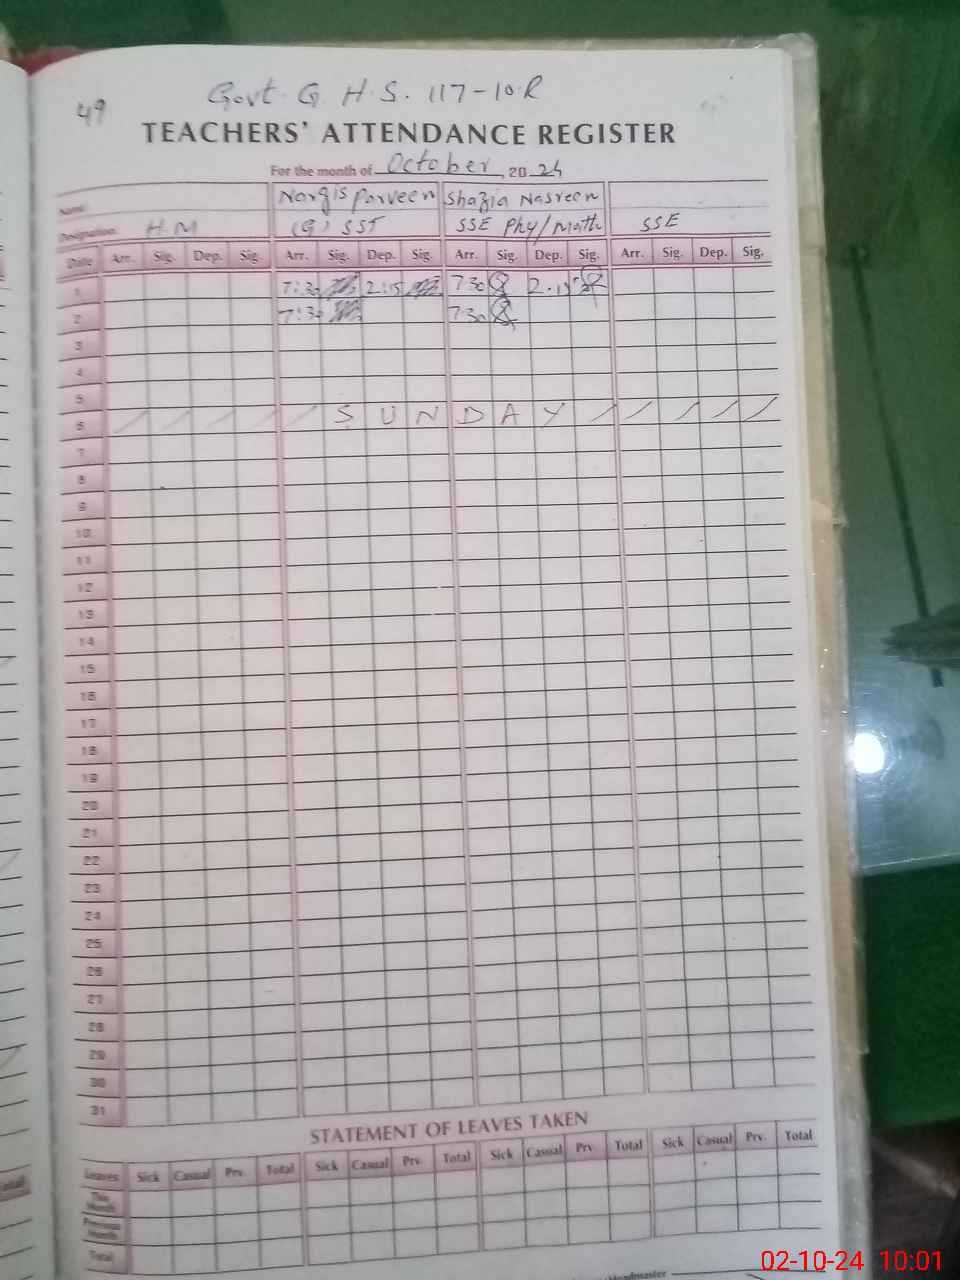 49
Govt. G. H. S. 117-10.R
TEACHERS' ATTENDANCE REGISTER
For the month of October, 20 24
Name: Nargis Parveen Shazia Nasreen
Designation: H.M (G) SST SSE Phy/Math SSE
Date Arr. Sig. Dep. Sig. Arr. Sig. Dep. Sig. Arr. Sig. Dep. Sig. Arr. Sig. Dep. Sig.
1 7:30 2:15 7 30 2.15
2 7:30 7.30
3
4
5
6 S U N D A Y
7
8
9
10
11
12
13
14
15
16
17
18
19
20
21
22
23
24
25
26
27
28
29
30
31
STATEMENT OF LEAVES TAKEN
Leaves Sick Casual Prv. Total Sick Casual Prv. Total Sick Casual Prv. Total Sick Casual Prv. Total
This Month
Previous Month
Total
Headmaster
02-10-24 10:01